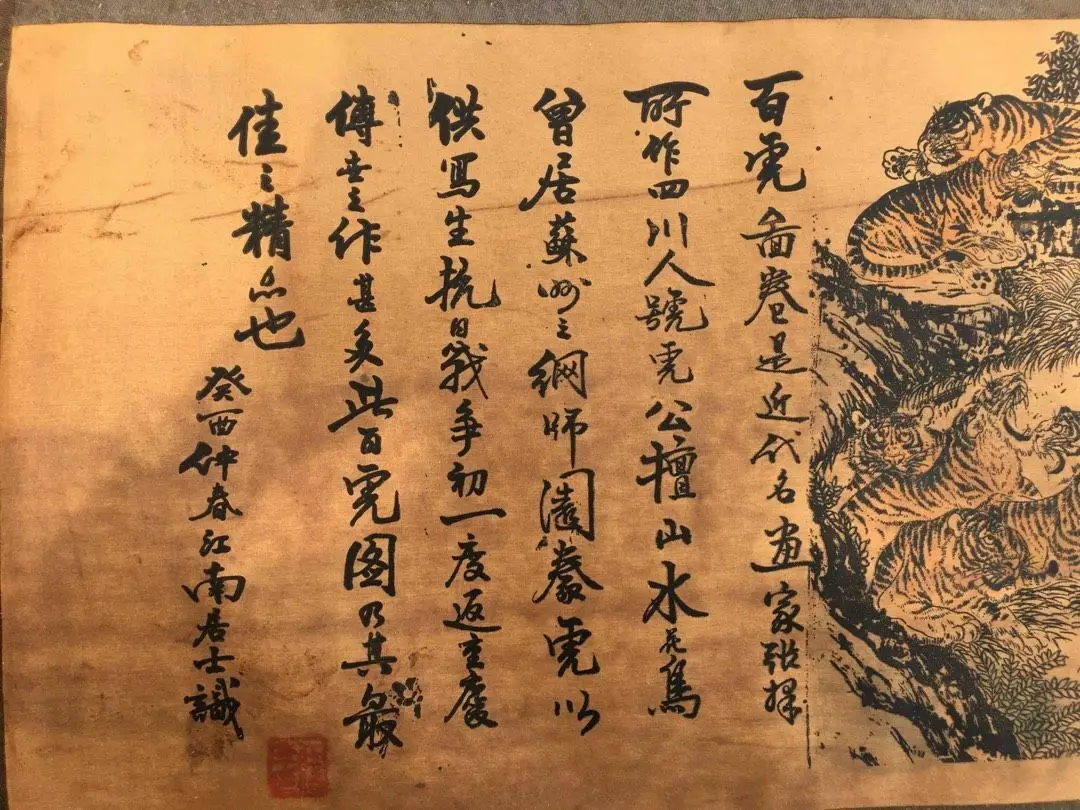 百虎啚卷是近代名畫家張擇
所作四川人號虎公擅山水花鳥
曾居蘇州之網師園養虎以
供寫生抗日戰爭初一度返重慶
傳世之作甚多此百虎图乃其最
佳之精品也
癸酉仲春江南居士識